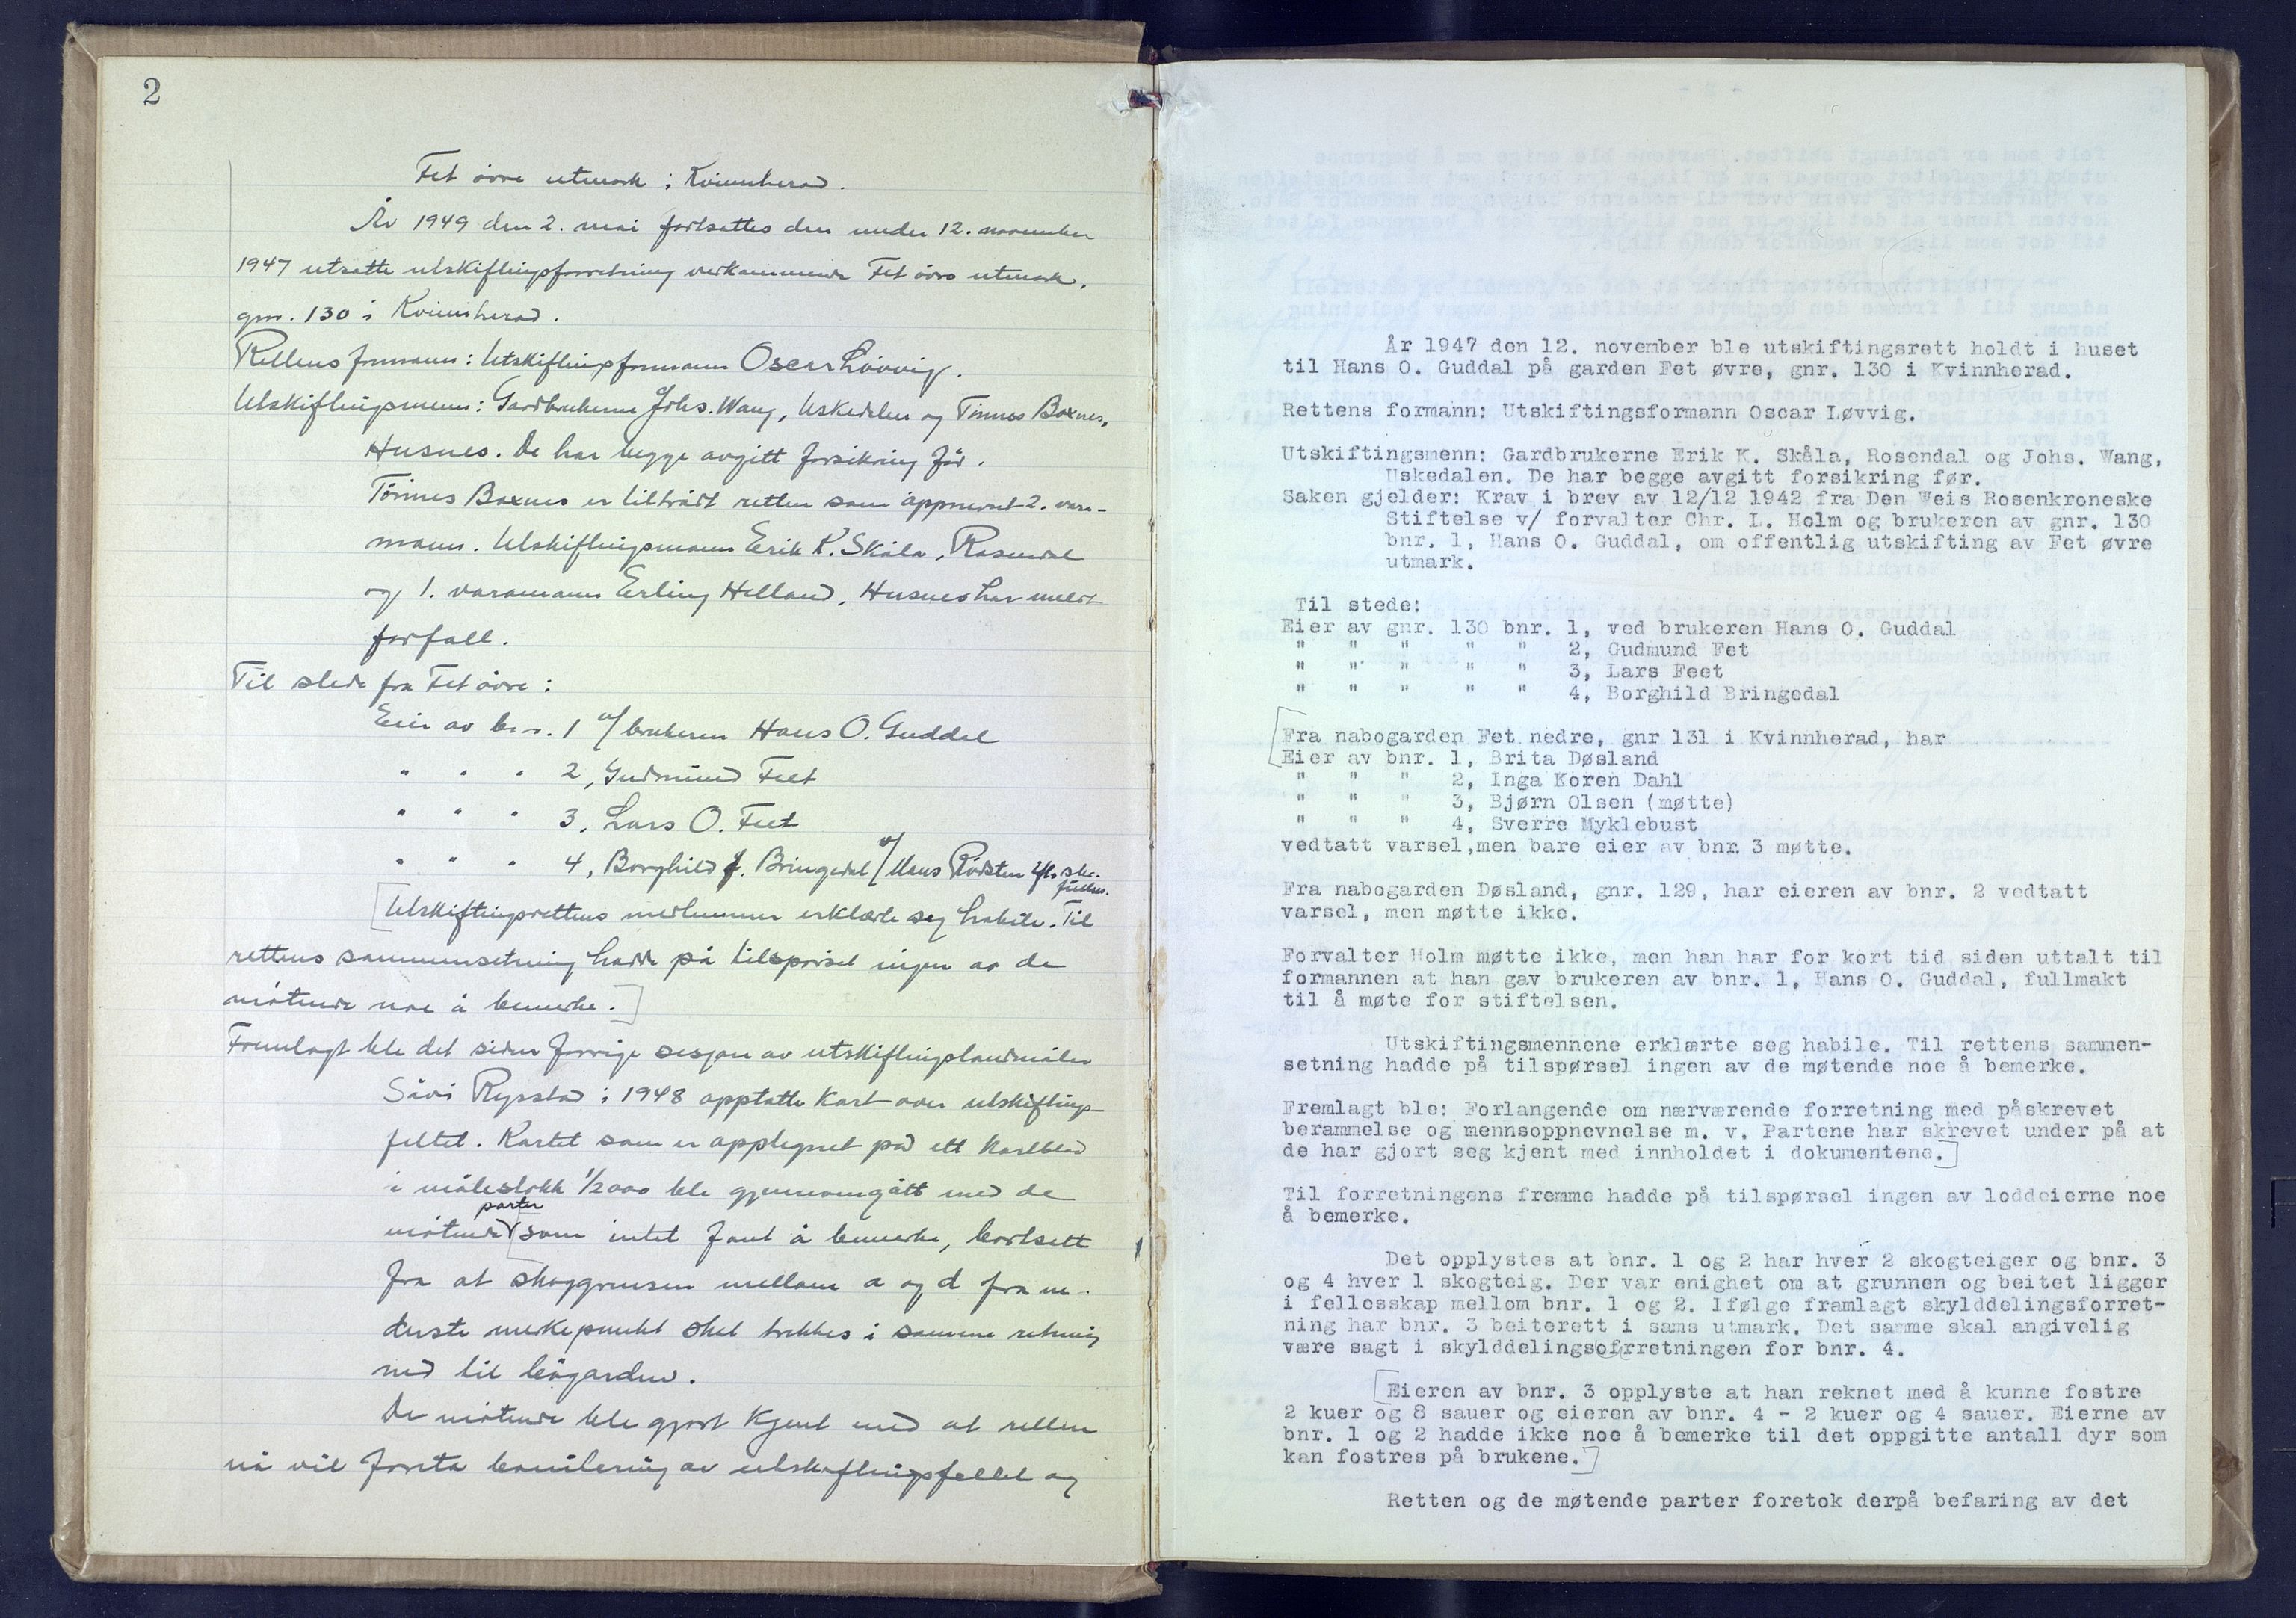 2
Fet övre utmark i Kvinnherad.
År 1949 den 2. mai fortsattes den under 12. november
1947 utsatte utskiftingsforretning vedkommende Fet övre utmark,
gnr. 130 i Kvinnherad.
Rettens formann: Utskiftingsformann Oscar Lövvig.
Utskiftingsmenn: Gardbrukerne Johs. Wang, Uskedalen og Tönnes Boxnes,
Husnes. De har begge avgitt forsikring för.
Tönnes Boxnes er tiltrådt retten som oppnevnt 2. vara-
mann. Utskiftingsmann Erik K. Skåla, Rosendal
og 1. varamann Erling Helland, Husnes har meldt
forfall.
Til stede fra Fet övre:
Eier av bnr. 1 v/ brukeren Hans O. Guddal
" " " 2, Gudmund Feet
" " " 3, Lars O. Feet
" " " 4, Borghild J. Bringedal v/ Mons Rödsten
[Utskiftingsrettens medlemmer erklærte seg habile. Til
rettens sammensetning hadde på tilspörsel ingen av de
møtende noe å bemerke.]
Fremlagt ble det siden forrige sesjon av utskiftingslandmåler
Såvi Rysstad i 1948 opptatte kart over utskiftings-
feltet. Kartet som er opptegnet på ett kartblad
i målestokk 1/2000 ble gjennomgått med de
parter
møtende [som intet fant å bemerke, bortsett
fra at skoggrensen mellom a og d fra ne-
derste merkepunkt skal trekkes i samme retning
ned til bögarden.
De møtende ble gjort kjent med at retten
nå vil foreta bonitering av utskiftingsfeltet og
År 1947 den 12. november ble utskiftingsrett holdt i huset
til Hans O. Guddal på garden Fet øvre, gnr. 130 i Kvinnherad.
Rettens formann: Utskiftingsformann Oscar Løvvig.
Utskiftingsmenn: Gardbrukerne Erik K. Skåla, Rosendal og Johs. Wang,
Uskedalen. De har begge avgitt forsikring før.
Saken gjelder: Krav i brev av 12/12 1942 fra Den Weis Rosenkroneske
Stiftelse v/ forvalter Chr. L. Holm og brukeren av gnr. 130
bnr. 1, Hans O. Guddal, om offentlig utskifting av Fet øvre
utmark.
Til stede:
Eier av gnr. 130 bnr. 1, ved brukeren Hans O. Guddal
" " " " " 2, Gudmund Fet
" " " " " 3, Lars Feet
" " " " " 4, Borghild Bringedal
[Fra nabogarden Fet nedre, gnr 131 i Kvinnherad, har
Eier av bnr. 1, Brita Døsland
" " " 2, Inga Koren Dahl
" " " 3, Bjørn Olsen (møtte)
" " " 4, Sverre Myklebust
vedtatt varsel,men bare eier av bnr. 3 møtte.
Fra nabogarden Døsland, gnr. 129, har eieren av bnr. 2 vedtatt
varsel, men møtte ikke.
Forvalter Holm møtte ikke, men han har for kort tid siden uttalt til
formannen at han gav brukeren av bnr. 1, Hans O. Guddal, fullmakt
til å møte for stiftelsen.
Utskiftingsmennene erklærte seg habile. Til rettens sammen-
setning hadde på tilspørsel ingen av de møtende noe å bemerke.
Fremlagt ble: Forlangende om nærværende forretning med påskrevet
berammelse og mennsoppnevnelse m. v. Partene har skrevet under på at
de har gjort seg kjent med innholdet i dokumentene.]
Til forretningens fremme hadde på tilspørsel ingen av loddeierne noe
å bemerke.
Det opplystes at bnr. 1 og 2 har hver 2 skogteiger og bnr. 3
og 4 hver 1 skogteig. Der var enighet om at grunnen og beitet ligger
i fellesskap mellom bnr. 1 og 2. Ifølge framlagt skylddelingsforret-
ning har bnr. 3 beiterett i sams utmark. Det samme skal angivelig
være sagt i skylddelingsofrretningen for bnr. 4.
[Eieren av bnr. 3 opplyste at han reknet med å kunne fostre
2 kuer og 8 sauer og eieren av bnr. 4 - 2 kuer og 4 sauer. Eierne av
bnr. 1 og 2 hadde ikke noe å bemerke til det oppgitte antall dyr som
kan fostres på brukene.]
Retten og de møtende parter foretok derpå befaring av det